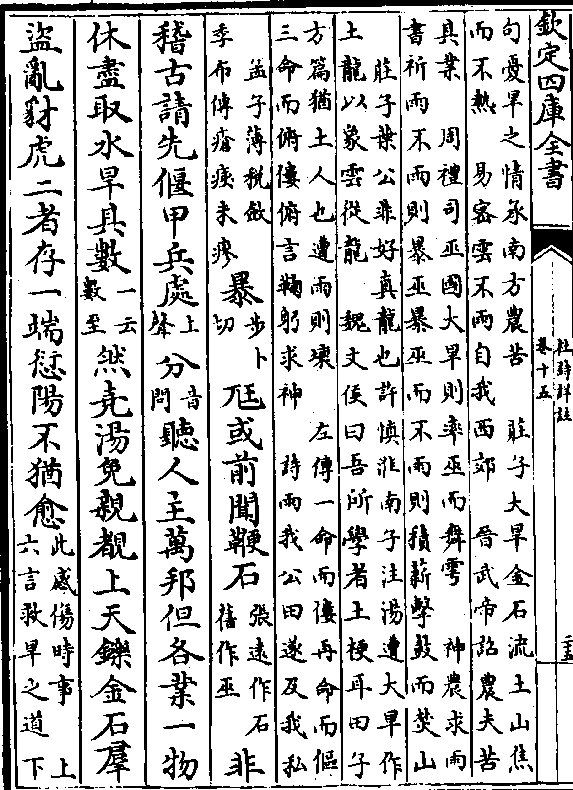 欽定四庫全書
杜詩詳註
卷十五
句憂旱之情承南方農苦　莊子大旱金石流土山焦
而不熱　易密雲不雨自我西郊　晉武帝詔農夫苦
其業　周禮司巫國大旱則率巫而舞雩　神農求雨
書祈雨不雨則暴巫暴巫而不雨則積薪擊鼓而焚山
莊子葉公非好真龍也許慎淮南子注湯遭大旱作
土龍以象雲從龍　魏文侯曰吾所學者土梗耳田子
方篇猶土人也遭雨則壞　左傳一命而僂再命而傴
三命而俯僂俯言鞠躬求神　詩雨我公田遂及我私
孟子薄稅斂
季布傳瘡痍未瘳
暴步卜切尫或前聞鞭石張遠作石舊作巫非
稽古請先偃甲兵處上聲分音問聽人主萬邦但各業一物
休盡取水旱其數一云數至然堯湯免親覩上天鑠金石羣
盜亂豺虎二者存一端愆陽不猶愈此感傷時事　上六言救旱之道　下